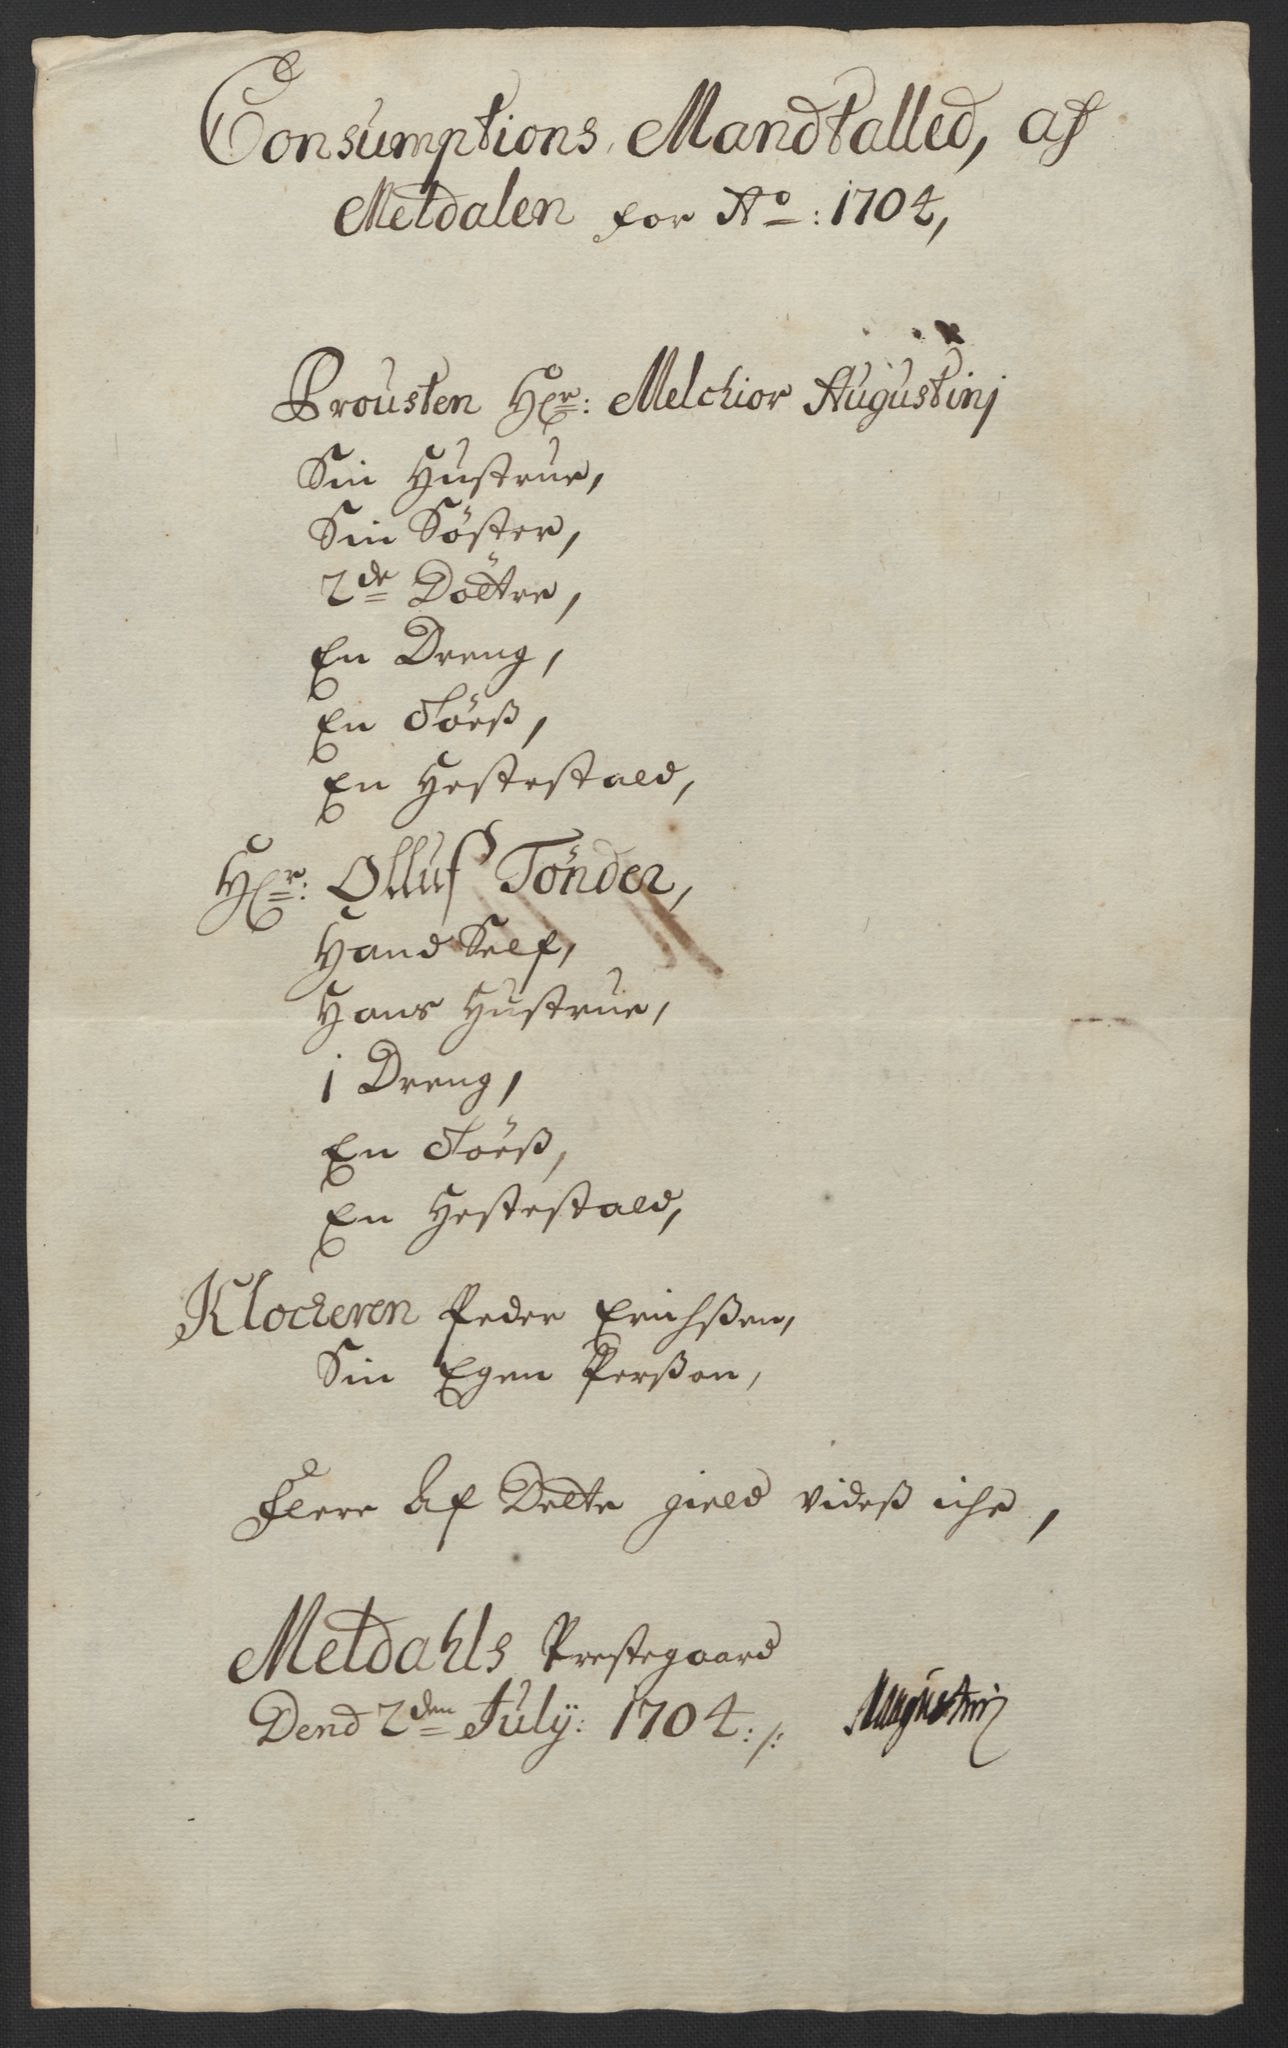 Consumptions Mandtalled, af
Meldalen for Ao: 1704,
Prousten Hr: Melchior Augustinj
Sin Hustrue,
Sin Söster,
2de Döttre,
En Dreng,
En Töes,
En Hestestald,
Hr: Olluf Tönder,
Hand Self,
Hans Hustrue,
1 Dreng,
En Töes,
En Hestestald,
Klocheren Peder Erichßen,
Sin Egen Perßon,
Flere Af Dette gield videß iche,
Meldahls Prestegaard
Dend 2den Julÿ: 1704:/: MAugustinj